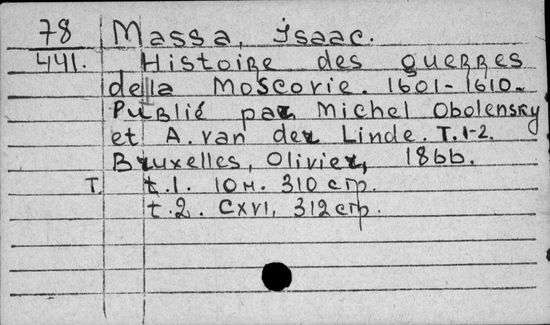 78 Massa, Isaac.
441. Histoire des guerres
de la Moscovie. 1601-1610.
Publié par Michel Obolensky
et A. van der Linde. T. 1-2.
Bruxelles, Olivier, 1866.
T. t.1. 10 н. 310 стр.
t.2. CXVI, 312 стр.